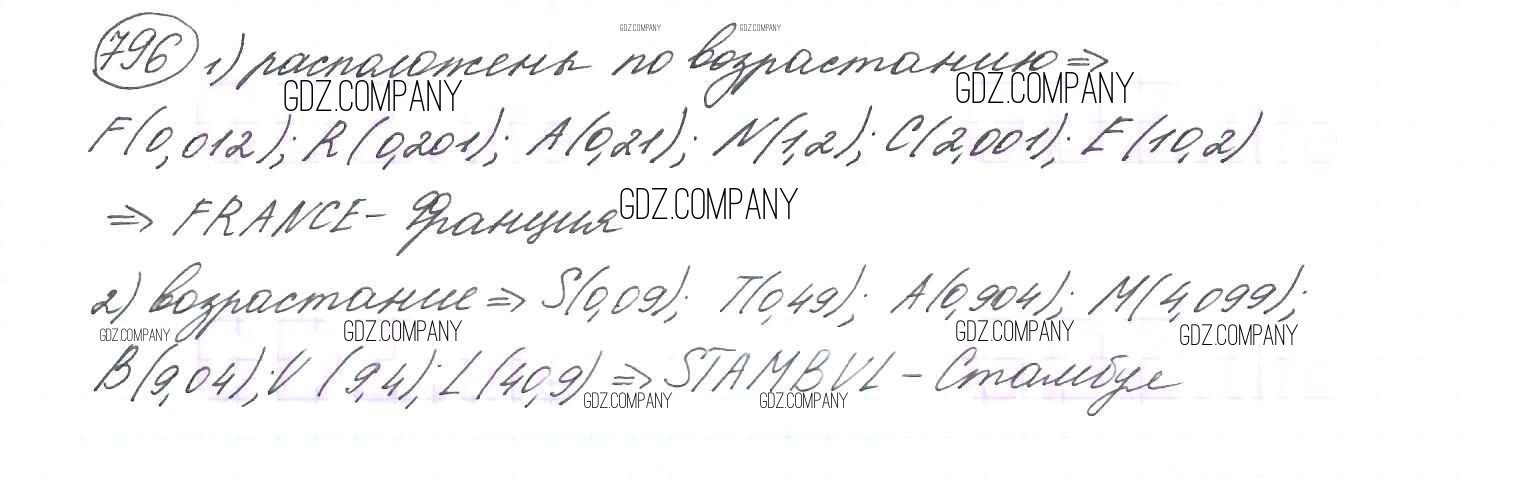 GDZ.COMPANY GDZ.COMPANY
796 1) расположены по возрастанию ⇒
GDZ.COMPANY GDZ.COMPANY
F(0,012); R(0,201); A(0,21); N(1,2); C(2,001); E(10,2)
⇒ FRANCE - Франция GDZ.COMPANY
2) возрастание ⇒ S(0,09); T(0,49); A(0,904); M(4,099);
GDZ.COMPANY GDZ.COMPANY GDZ.COMPANY GDZ.COMPANY
B(9,04); V (9,4); L(40,9) ⇒ STAMBVL - Стамбул
GDZ.COMPANY GDZ.COMPANY